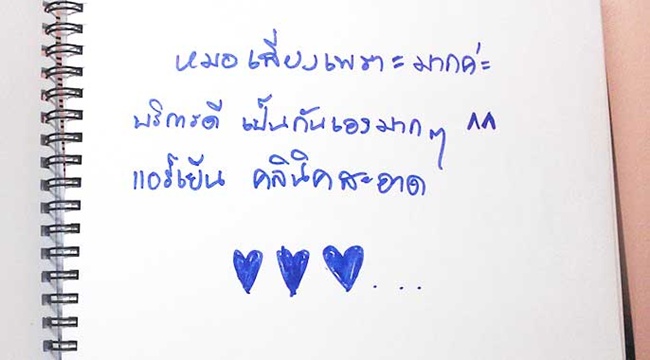 หมอเสียงเพราะมากค่ะ
บริการดี เป็นกันเองมากๆ ^^
แอร์เย็น คลินิคสะอาด
...